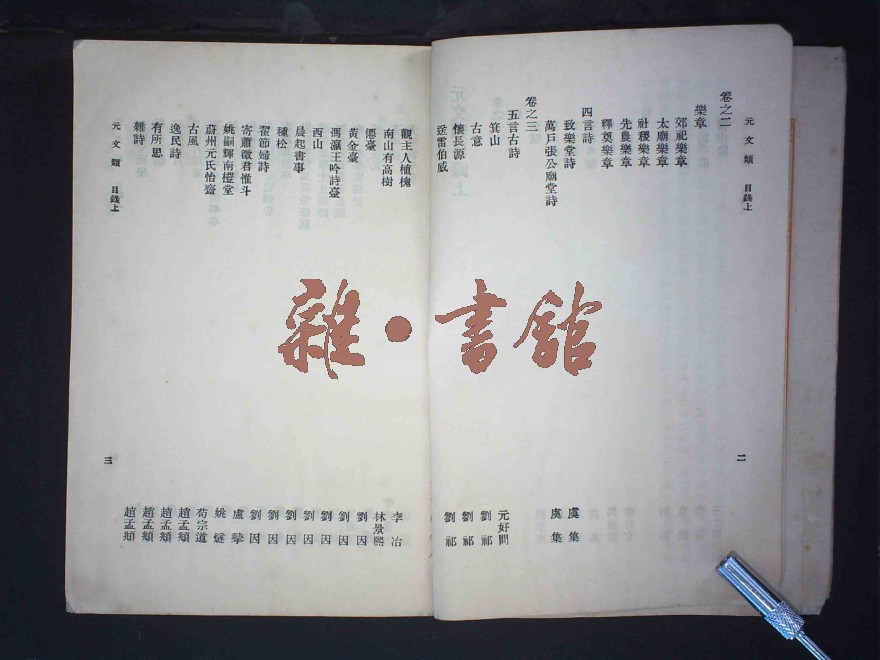 元文類 目錄上
卷之二
樂章
郊祀樂章
太廟樂章
社稷樂章
先農樂章
釋奠樂章
四言詩
致樂堂詩 虞集
萬戶張公廟堂詩 虞集
卷之三
五言古詩
箕山 元好問
古意 劉祁
懷長源 劉祁
送雷伯威 劉祁
二
觀主人植槐 李冶
南山有高樹 林景熙
僊臺 劉因
黃金臺 劉因
馮瀛王吟詩臺 劉因
西山 劉因
晨起書事 劉因
種松 劉因
翟節婦詩 劉因
寄蕭徵君惟斗 盧摯
姚嗣輝南愷堂 姚燧
蔚州元氏怡齋 苟宗道
古風 趙孟頫
逸民詩 趙孟頫
有所思 趙孟頫
雜詩 趙孟頫
元文類 目錄上
三
雜·書館